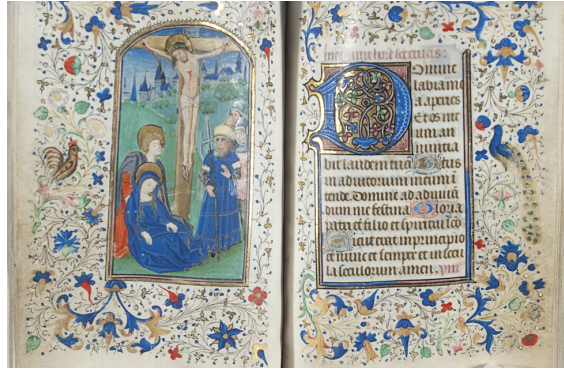 Incipiunt hore sce crucis:
Domine
labia me
a aperies
et os me
um an
nuntia
bit laudem tuā Deus
in adiutorium meum ī
tende. Domine ad adiuuā
dum me festina Gloria
patri et filio et spiritui scō
Sicut erat in principio
et nunc et semper et in secu
la seculorum amen.